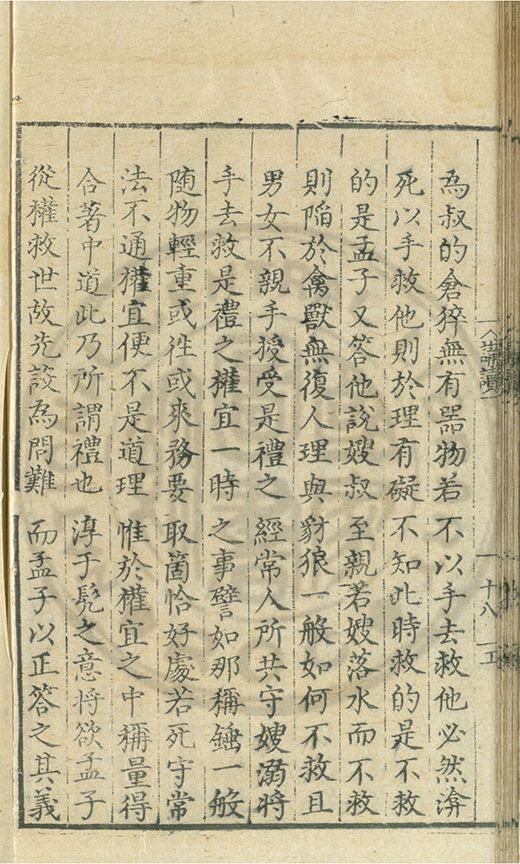 為叔的倉猝無有器物若不以手去救他必然渰
死以手救他則於理有礙不知此時救的是不救
的是孟子又答他說嫂叔至親若嫂落水而不救
則陷於禽獸無復人理與豺狼一般如何不救且
男女不親手授受是禮之經常人所共守嫂溺將
手去救是禮之權宜一時之事譬如那稱錘一般
随物輕重或徃或來務要取箇恰好處若死守常
法不通權宜便不是道理惟於權宜之中稱量得
合著中道此乃所謂禮也淳于髡之意将欲孟子
從權救世故先設為問難而孟子以正答之其義
十八